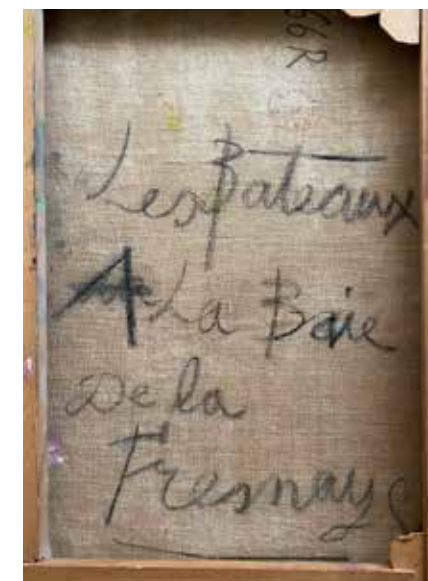 66R
Les Bateaux
A La Baie
De la
Fresnaye